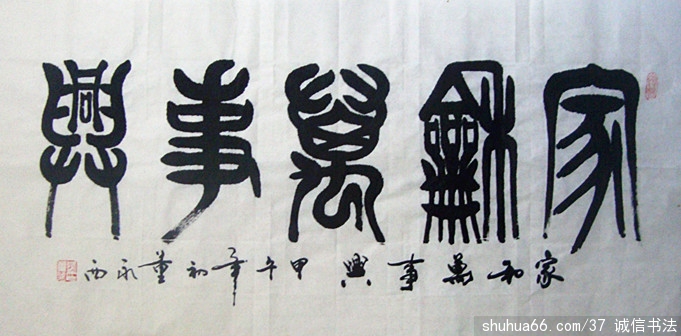 家龢萬事興
家和萬事興 甲午年初 董永西
shuhua66.com/37 诚信书法